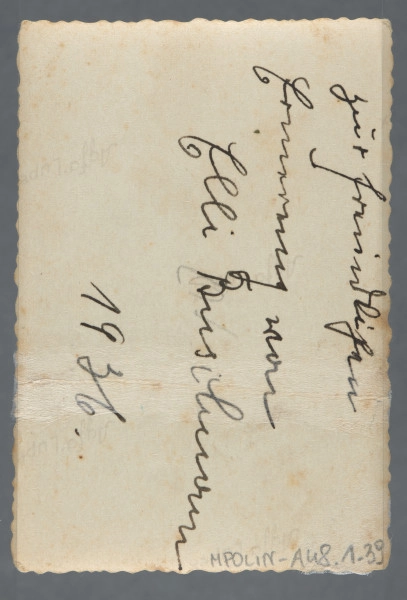 zur freundlichen
Erinnerung von
Elli Buschmann
1936.
MPOLIN-A48.1-39